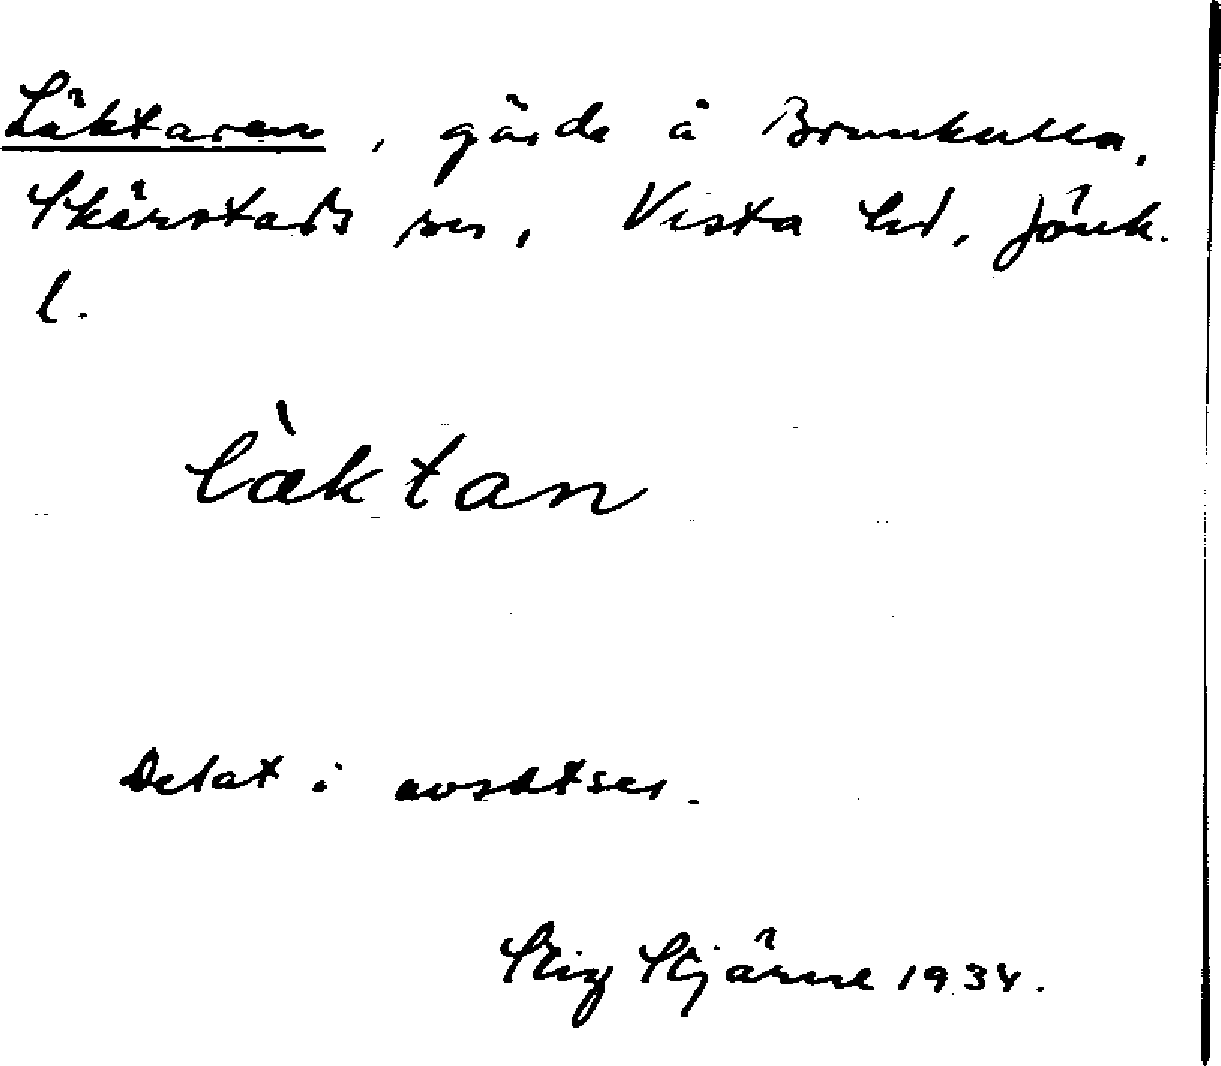 Läktaren, gärde å Brunkulla,
Skärstads sn, Vista hd, Jönk.
l.
l`æktan
Delat i avsatser.
Stig Stjärne 1934.